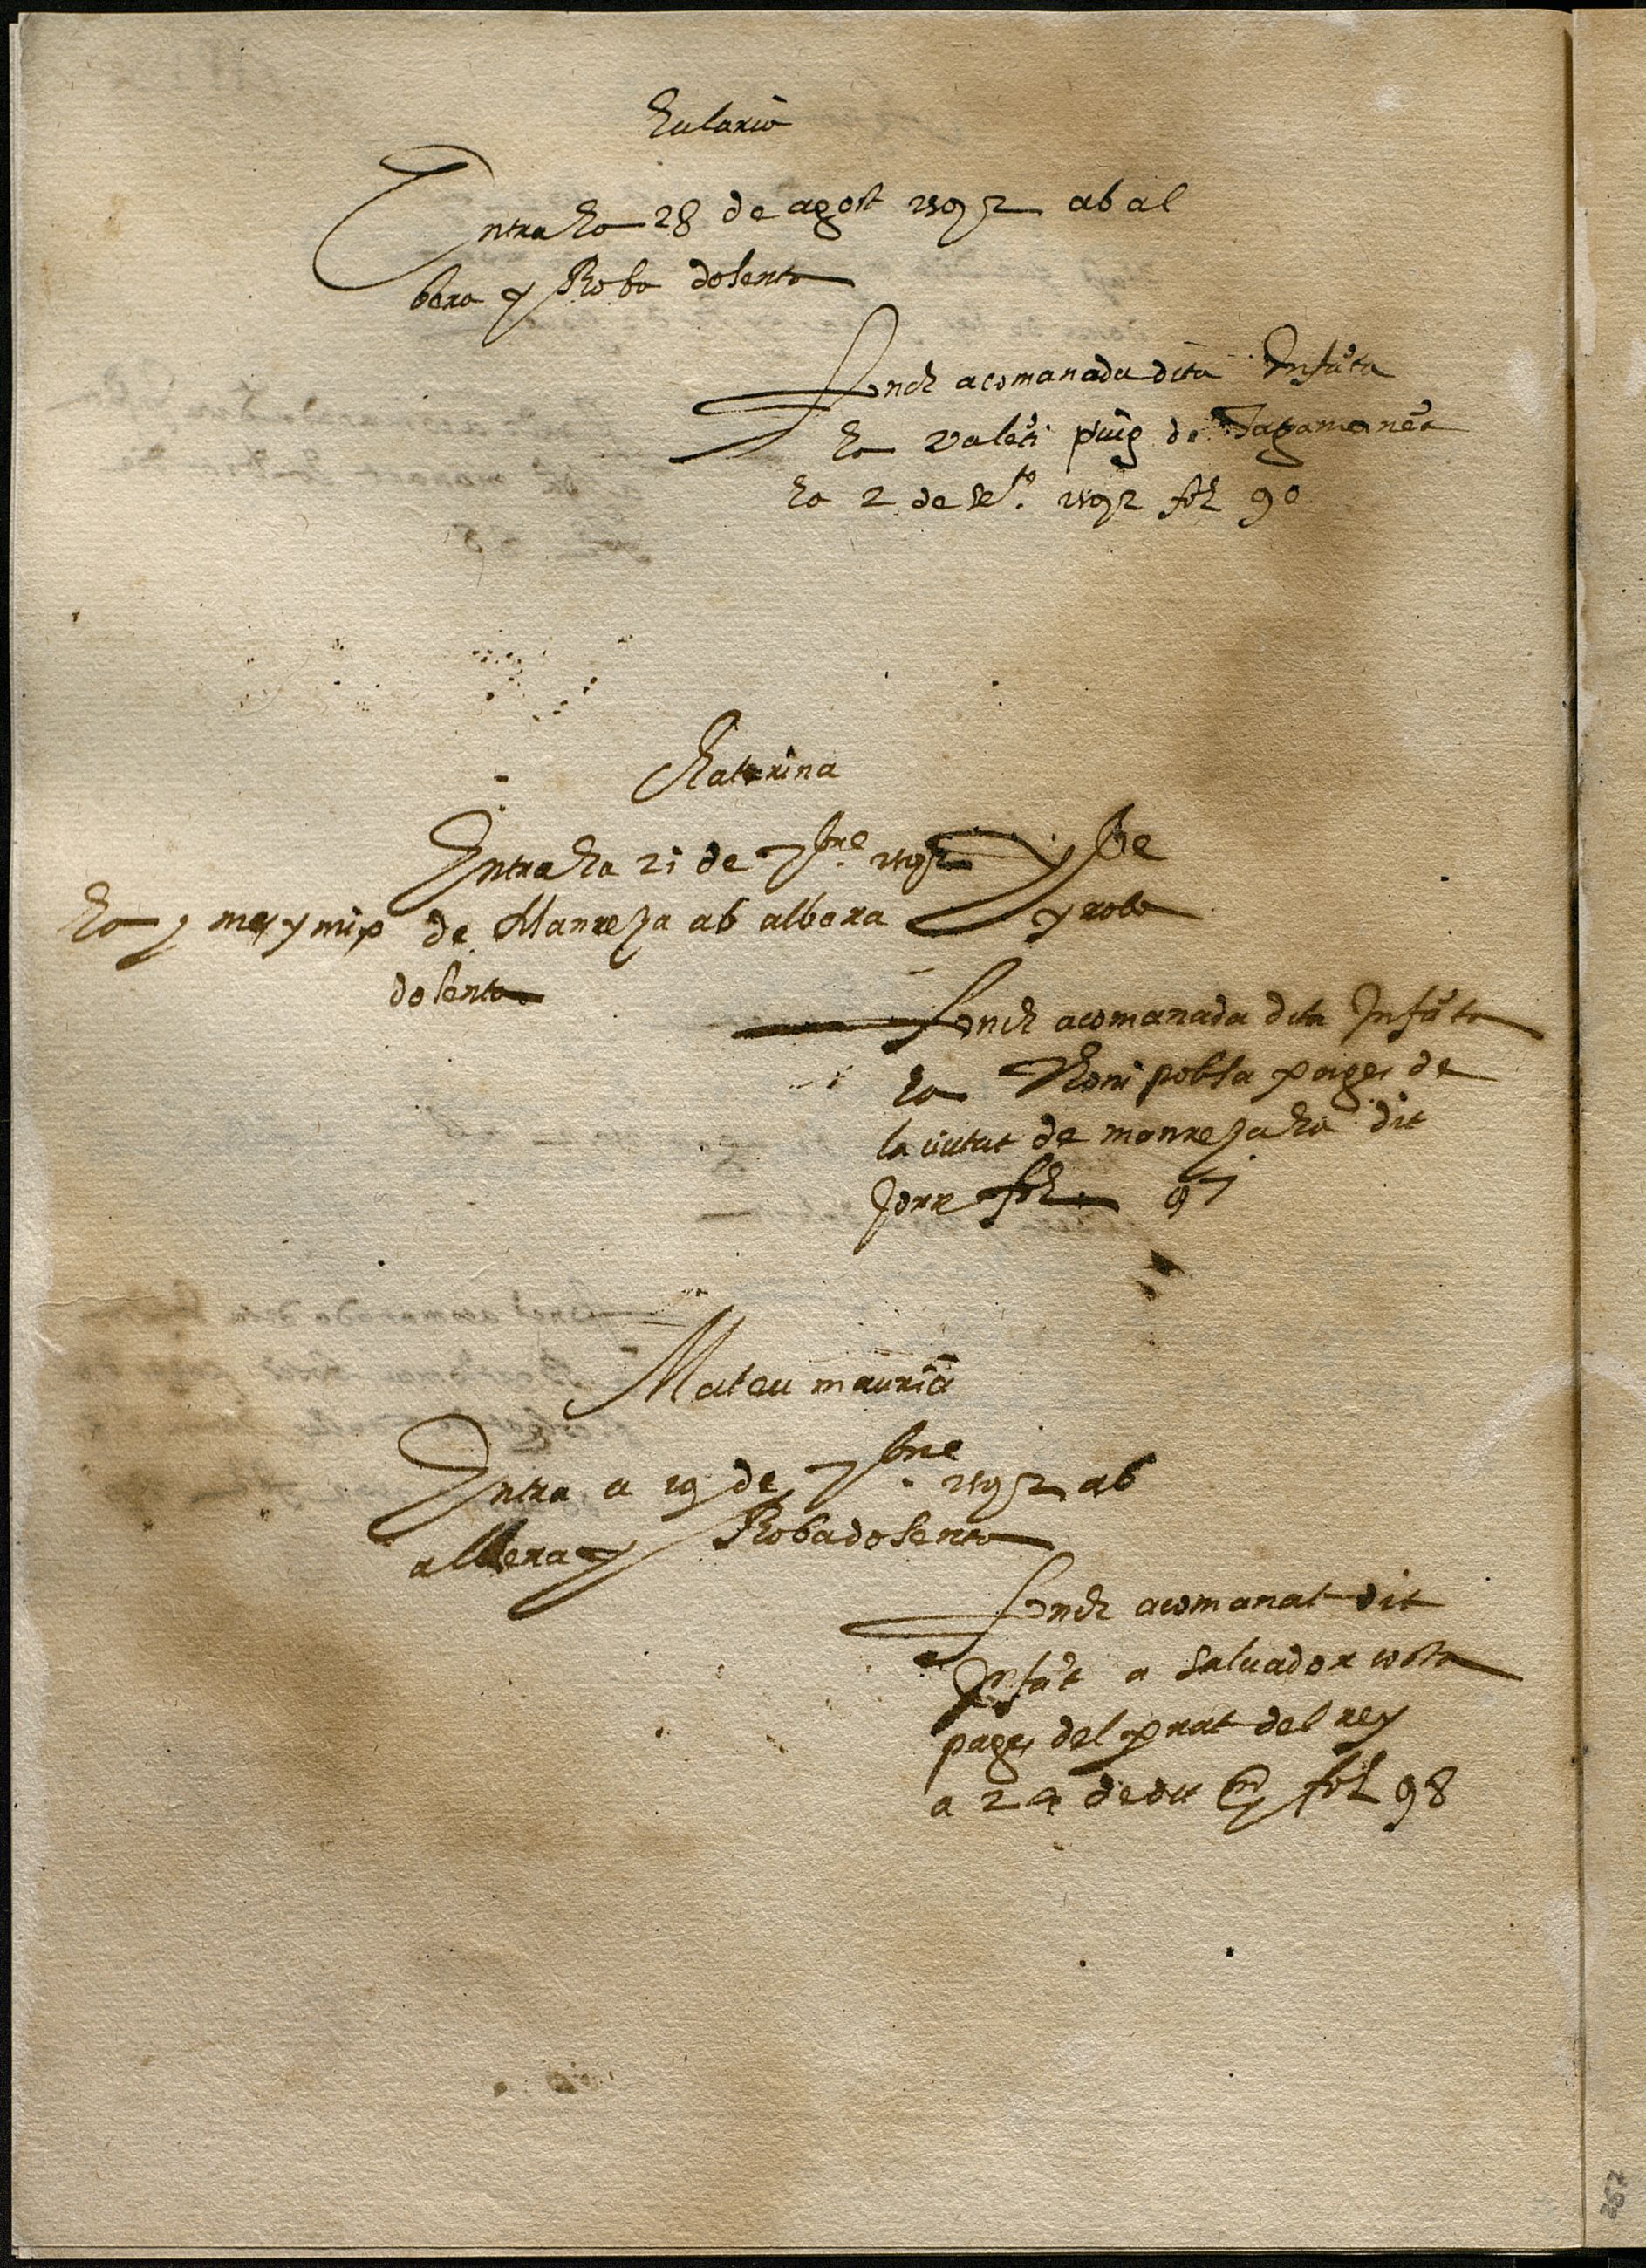 Eularia
Entra ha 28 de agost 1592 ab al
bera y Roba dolenta
fonch acomanada dita Infãta
ha Valẽti puig de Tagamanẽt
ha 2 de se.^to 1592 fol 90
Katerina
Entra ha 21 de 7bre 1592
mes y mix de Manresa ab albera y roba
dolenta
fonch acomanada dita Infãta
ha pobla paiges de
la ciutat de manresa ha dit
Jorn fol 97
Mateu maurici
Entra a 19 de 7bre 1592 ab
albera y Roba dolenta
fonch acomanat dit
Infãt a Saluador costa
pages del prat del rey
a 24 de dit fol 98